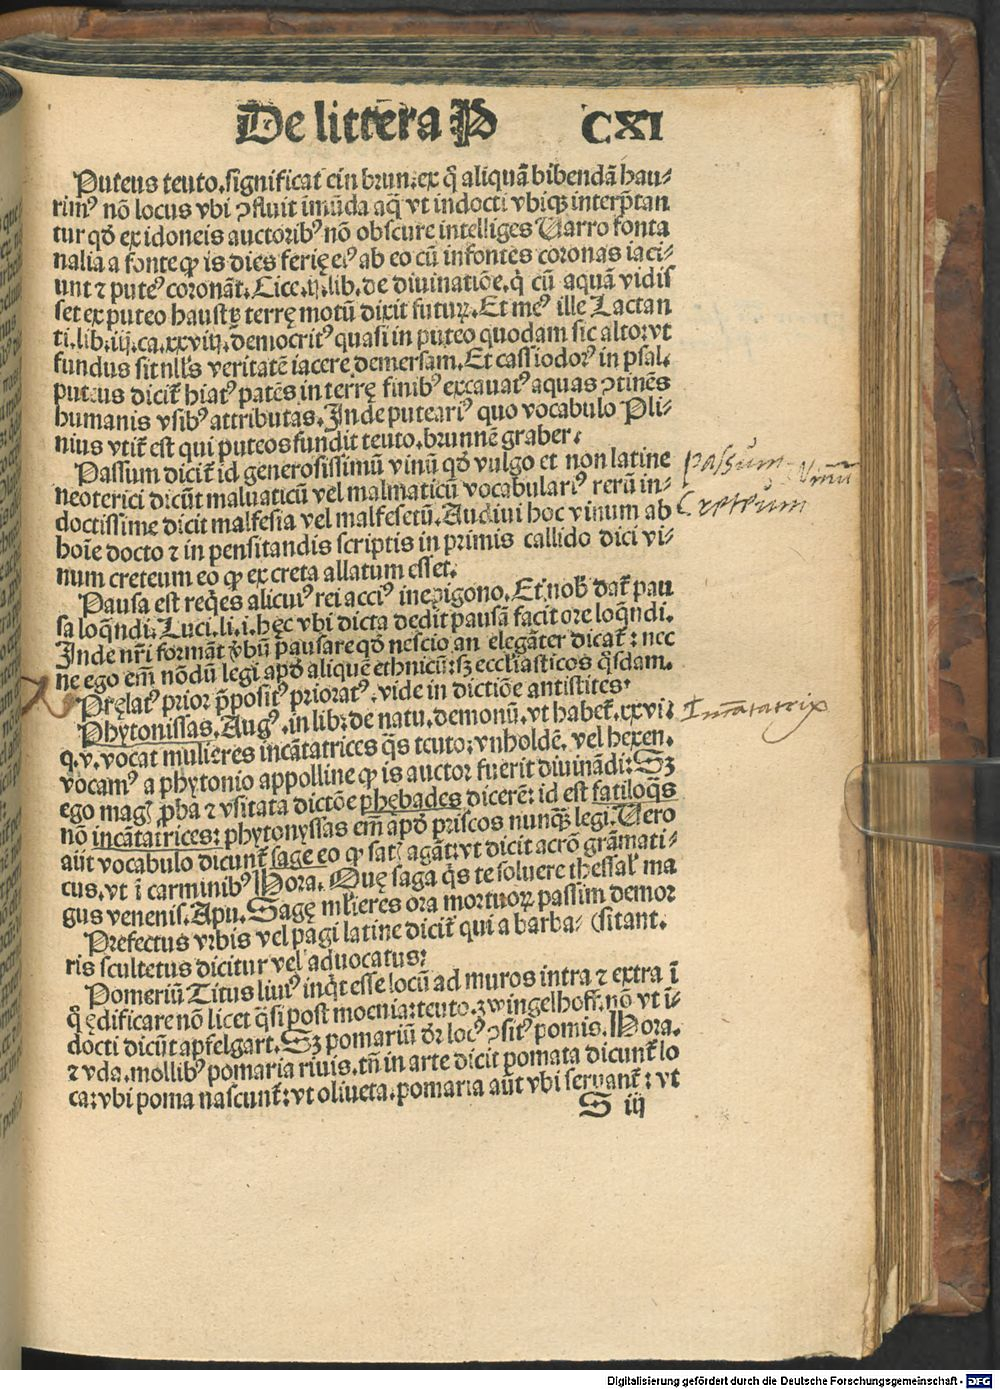 De littera P CXI
Puteus teuto. significat ein brun. ex q̄ aliquā bibendā hau⸗
rimꝰ nō locus vbi ↄfluit īmūda aq̄ vt indocti vbiqꝫ interp̄tan
tur qd̄ ex idoneis auctoribꝰ nō obscure intelliges Varro fonta
nalia a fonte ꝙ is dies ferię eiꝰ ab eo cū in fontes coronas iaci⸗
unt ⁊ puteꝰ coronāt. Cice. ij. lib. de diuinatiōe, q̇ cū aquā vidis
set ex puteo haustā terrę motū dixit futurꝝ. Et meꝰ ille Lactan
ti. lib. iij. ca. xxviij. democritꝰ quasi in puteo quodam sic alto: vt
fundus sit nllꝰs veritatē iacere demersam. Et cassiodorꝰ in psal.
puteus dicit̄ hiatꝰ patēs in terrę finibꝰ excauatꝰ aquas ↄtinēs
humanis vsibꝰ attributas. Inde putearꝰ quo vocabulo Pli⸗
nius vtit̄ est qui puteos fundit teuto. brunnē graber.
Passum dicit̄ id generosissimū vinū qd̄ vulgo et non latine
neoterici dicūt maluaticū vel malmaticū vocabulariꝰ rerū in⸗
doctissime dicit malfesia vel malfesetū. Audiui hoc vinum ab
hoīe docto ⁊ in pensitandis scriptis in primis callido dici vi⸗
num creteum eo ꝙ ex creta allatum esset.
passum Vinū
Creteum
Pausa est req̄es alicuiꝰ rei acciꝰ in epigono. Et nob̄ dat̄ pau
sa loq̄ndi. Luci. li. i. hęc vbi dicta dedit pausā facit ore loq̄ndi.
Inde nr̄i formāt v̄bū pausare qd̄ nescio an elegāter dicat̄: nec
ne ego em̄ nōdū legi apd̄ aliquē ethnicū: sꝫ ecclīasticos q̄sdam.
Pręlatꝰ prior p̄positꝰ prioratꝰ. vide in dictiōe antistites.
Phytonissas. Augꝰ. in lib. de natu. demonū. vt habet̄. xxvi:
q. v. vocat mulieres incātatrices q̄s teuto: vnholdē. vel hexen.
Incātatrix
vocamꝰ a phytonio appolline ꝙ is auctor fuerit diuināndi: Sꝫ
ego magꝭ p̄ba ⁊ vsitata dictōe phębades dicerē: id est fatiloq̄s
nō incātatrices: phytonyssas em̄ apd̄ priscos nunqꝫ legi. Vero
aūt vocabulo dicunt̄ sage eo ꝙ satꝭ agāt: vt dicit acrō grāmati⸗
cus. vt ī carminibꝰ Hora. Quę saga q̄s te soluere thessalꝭ ma
gus venenis. Apu. Sagę ml̄ieres ora mortuorꝝ passim demor
Prefectus vrbis vel pagi latine dicit̄ qui a barba⸗ (sitant.
ris scultetus dicitur vel aduocatus:
Pomeriū Titus liuiꝰ inq̄t esse locū ad muros intra ⁊ extra ī
q̄ ędificare nō licet q̄si post moenia: teuto. zwingelhoff. nō vt ī⸗
docti dicūt apfelgart. Sꝫ pomariū dr̄ locꝰ ↄsitꝰ pomis. Hora.
⁊ vda. mollibꝰ pomaria riuis. tn̄ in arte dicit pomata dicunt̄ lo
ca: vbi poma nascunt̄: vt oliueta. pomaria aūt vbi seruant̄: vt
S iij
Digitalisierung gefördert durch die Deutsche Forschungsgemeinschaft - DFG